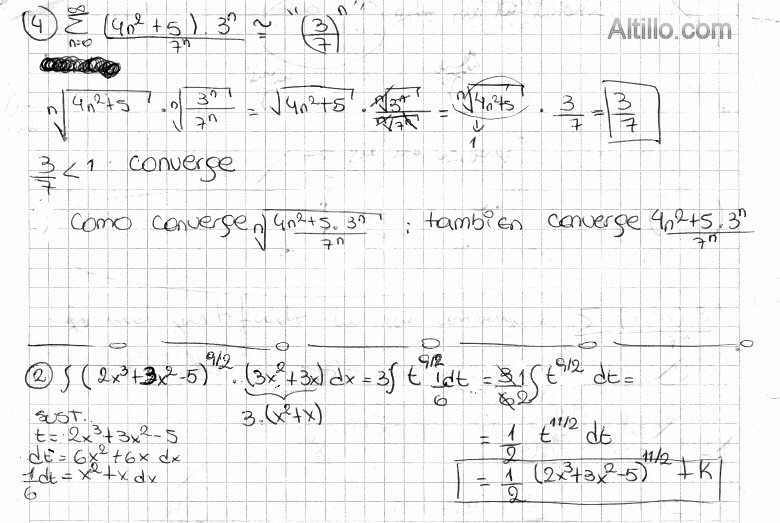 Altillo.com
④ ∞∑n=0 (4n²+5).3ⁿ/7ⁿ ≅ "(3/7)ⁿ"
ⁿ√(4n²+5) · ⁿ√(3ⁿ/7ⁿ) = √(4n²+5) · ⁿ√3ⁿ/ⁿ√7ⁿ = ⁿ√(4n²+5) · 3/7 = 3/7
↓
1
3/7 < 1 converge
Como converge ⁿ√(4n²+5.3ⁿ/7ⁿ) ; tambien converge 4n²+5.3ⁿ/7ⁿ
② ∫(2x³+3x²-5)^9/2 . (3x²+3x) dx = 3∫ t^9/2 1/6 dt = 3/6 1/2 ∫ t^9/2 dt =
3.(x²+x)
SUST.
t = 2x³+3x²-5
dt = 6x²+6x dx
= 1/2 t^11/2 dt
1/6 dt = x²+x dx
= 1/2 (2x³+3x²-5)^11/2 + K